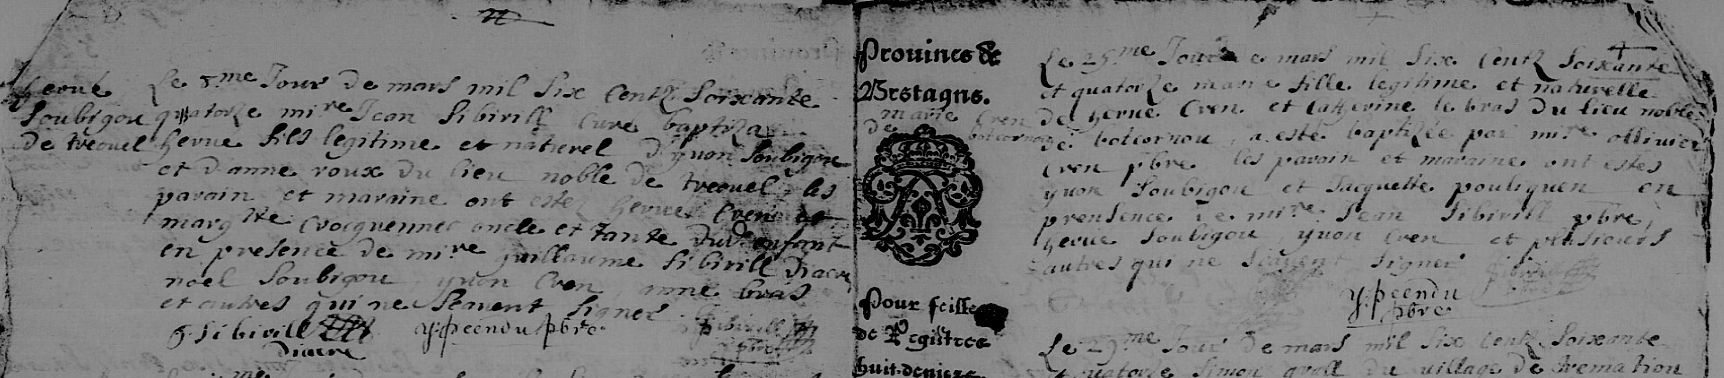 herué
Soubigou
de treouel
Le 5.me Jour de mars mil six centz soixante
quatorze mi.re Jean Sibirill curé baptiza
herue fils legitime et naturel d'yuon Soubigou
et d'anne roux du lieu noble de treouel les
parain et maraine ont estez herué Cren et
marg.tte Crocquennec oncle et tante dud. enfant
en presence de mi.re guillaume Sibirill Diacre
noel Soubigou yuon Cren anne bras
et autres qui ne scauent signer
g. Sibirill
Diacre
y. peendu pbre
Sibirill
pbre
Prouince de
Bretagne.
Pour feille
de Registres
huit deniers
marie Cren
de botcornou
Le 25.me Jour de mars mil six centz soixante
et quatorze marie fille legitime et naturelle
de herué Cren et Catherine le bras du lieu noble
de botcornou a esté baptizée par mi.re ollivier
Cren pbre les parain et maraine ont estes
yuon Soubigou et Jacquette pouliquen en
presence de mi.re Jean Sibirill pbre
herue Soubigou yuon Cren et plusieurs
autres qui ne scauent signer
y. peendu
pbre
Le 29.me Jour de mars mil six centz soixante
et quatorze Simon grall du village de tremation